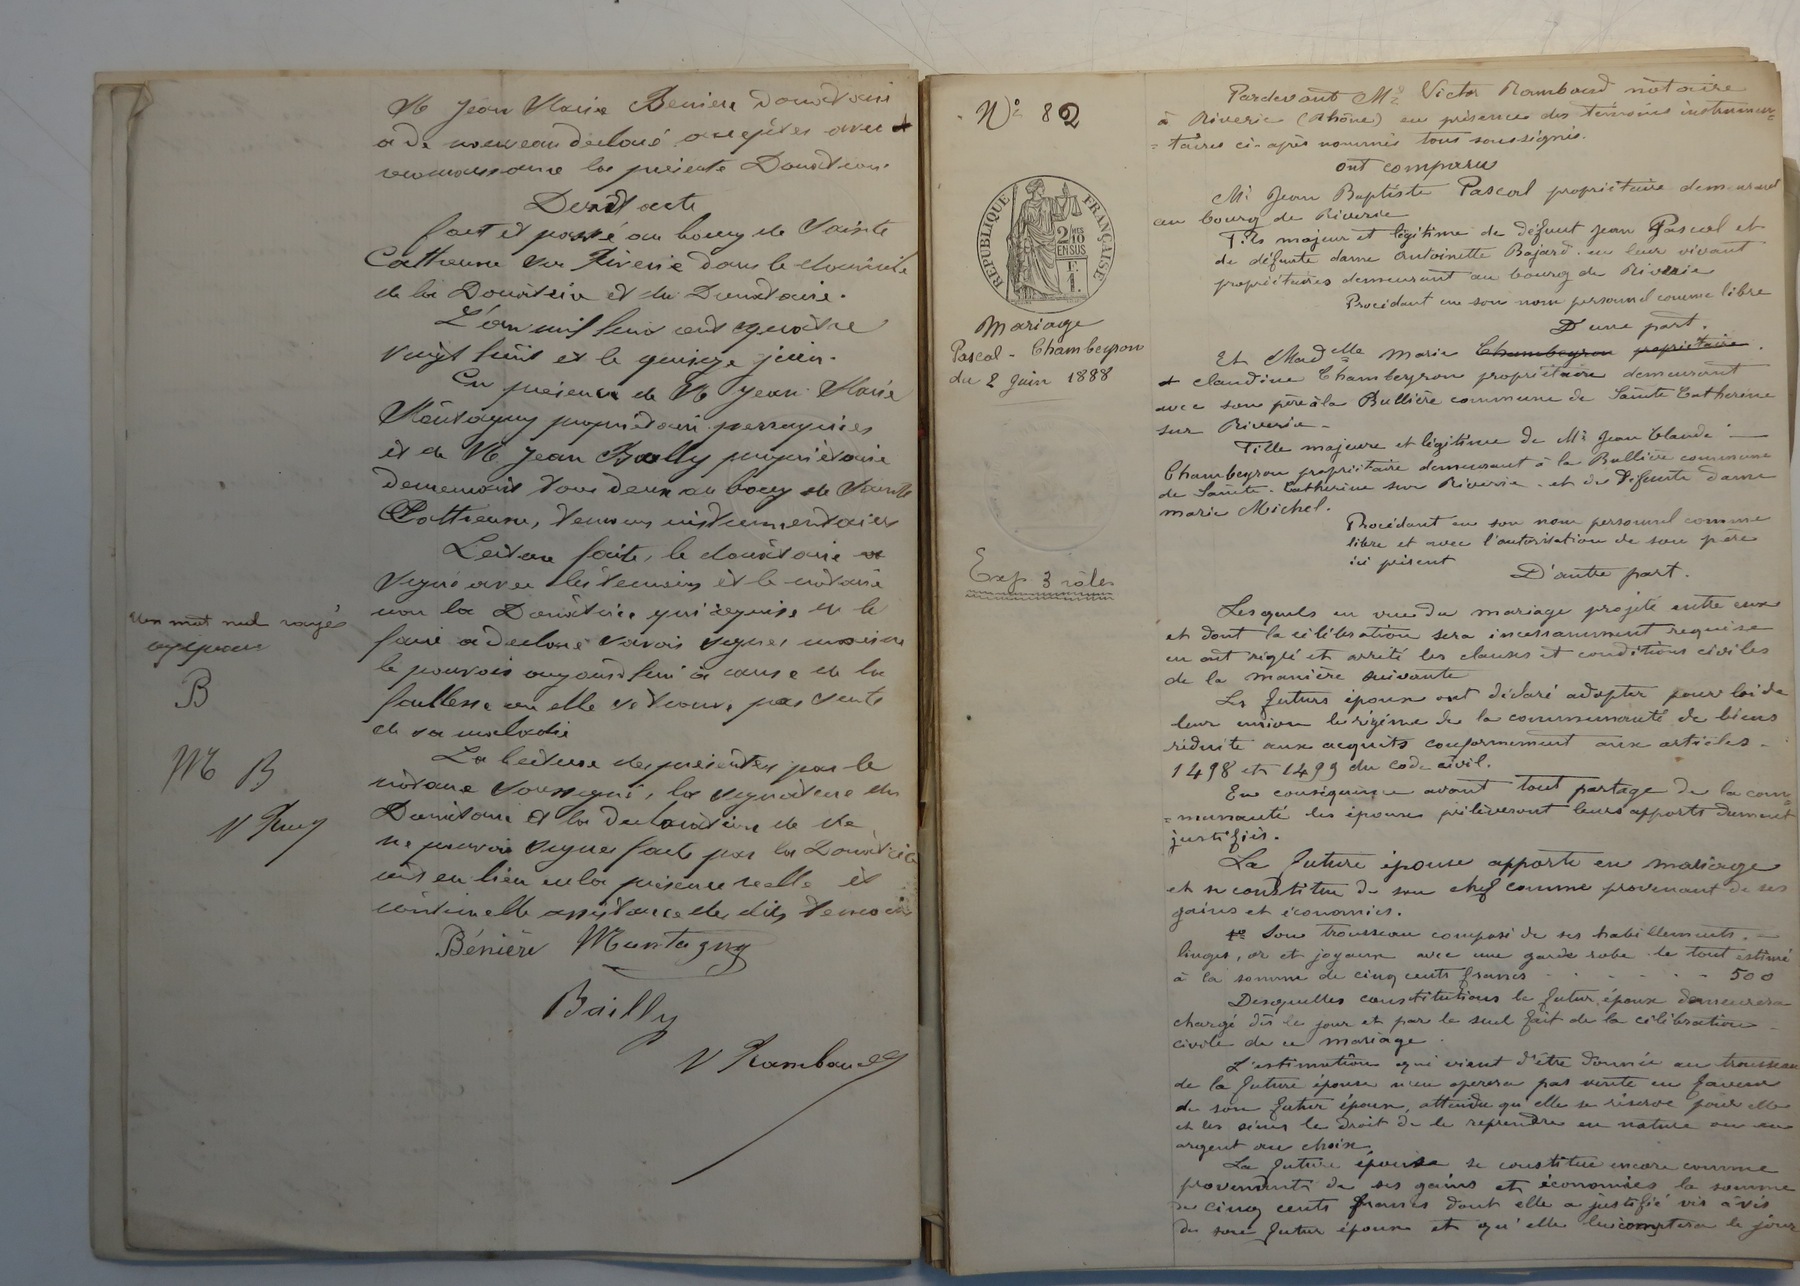 Mr Jean Marie Beniere Donataire
a de nouveau déclaré accepter avec
reconnaissance la présente Donation.
Dont acte
fait et passé au bourg de Sainte
Catherine sur Riverie dans le domicile
de la Donatrice et du Donataire.
L'an mil huit cent quatre
vingt huit et le quinze juin.
En présence de Mr Jean Marie
Montagny propriétaire
et de Mr Jean Bailly propriétaire
demeurant tous deux au bourg de Sainte
Catherine, témoins instrumentaires
Lecture faite, le donataire a
signé avec les témoins et le notaire
non la Donatrice qui requise de le
faire a déclaré savoir signer mais ne
le pouvoir aujourd'hui à cause de la
faiblesse ou elle se trouve par suite
de sa maladie
La lecture des présentes par le
notaire soussigné, la signature du
Donataire et la déclaration de
ne pouvoir signer faite par la Donatrice
ont eu lieu en la présence réelle et
continuelle assistance des dits témoins
Bénière Montagny
Bailly
V Rambaud
Un mot nul rayé
approuvé
B
M B
V R
N° 82
REPUBLIQUE FRANÇAISE
2/10
EN SUS
F.
1.
Mariage
Pascal - Chambeyron
du 2 Juin 1888
Exp 3 rôles
Pardevant Me Victor Rambaud notaire
à Riverie (Rhône) en présence des témoins instrumen=
=taires ci-après nommés tous soussignés.
ont comparu
Mr Jean Baptiste Pascal propriétaire demeurant
au bourg de Riverie
Fils majeur et légitime de défunt Jean Pascal et
de défunte dame Antoinette Bajard. en leur vivant
propriétaires demeurant au bourg de Riverie
Procédant en son nom personnel comme libre
D'une part.
Et Madelle Marie Chambeyron propriétaire.
Claudine Chambeyron propriétaire demeurant
avec son père à la Bullière commune de Sainte Catherine
sur Riverie -
Fille majeure et légitime de Mr Jean Claude
Chambeyron propriétaire demeurant à la Bullière commune
de Sainte-Catherine sur Riverie - et de défunte dame
marie Michel.
Procédant en son nom personnel comme
libre et avec l'autorisation de son père
ici présent
D'autre part.
Lesquels en vue du mariage projeté entre eux
et dont la célébration sera incessamment requise
en ont réglé et arrêté les clauses et conditions civiles
de la manière suivante
Les futurs époux ont déclaré adopter pour loi de
leur union le régime de la communauté de biens
réduite aux acquits conformement aux articles -
1498 et 1499 du code civil.
En conséquence avant tout partage de la com=
=munauté les époux prélèveront leurs apports dument
justifiés.
La future épouse apporte en mariage
et se constitue de son chef comme provenant de ses
gains et économies.
1º Son trousseau composé de ses habillements. -
linges, or et joyaux avec une garde robe le tout estimé
à la somme de cinq cents francs - - - - - 500
Desquelles constitutions le futur époux demeurera
chargé dès le jour et par le seul fait de la célébration -
civile de ce mariage.
L'estimation qui vient d'être donnée au trousseau
de la future épouse n'en opèrera pas vente en faveur
de son futur époux, attendu qu'elle se réserve pour elle
et les siens le droit de le reprendre en nature ou en
argent au choix
La future épouse se constitue encore comme
provenant de ses gains et économies la somme
de cinq cents francs dont elle a justifié vis à vis
de son futur époux et qu'elle lui comptera le jour